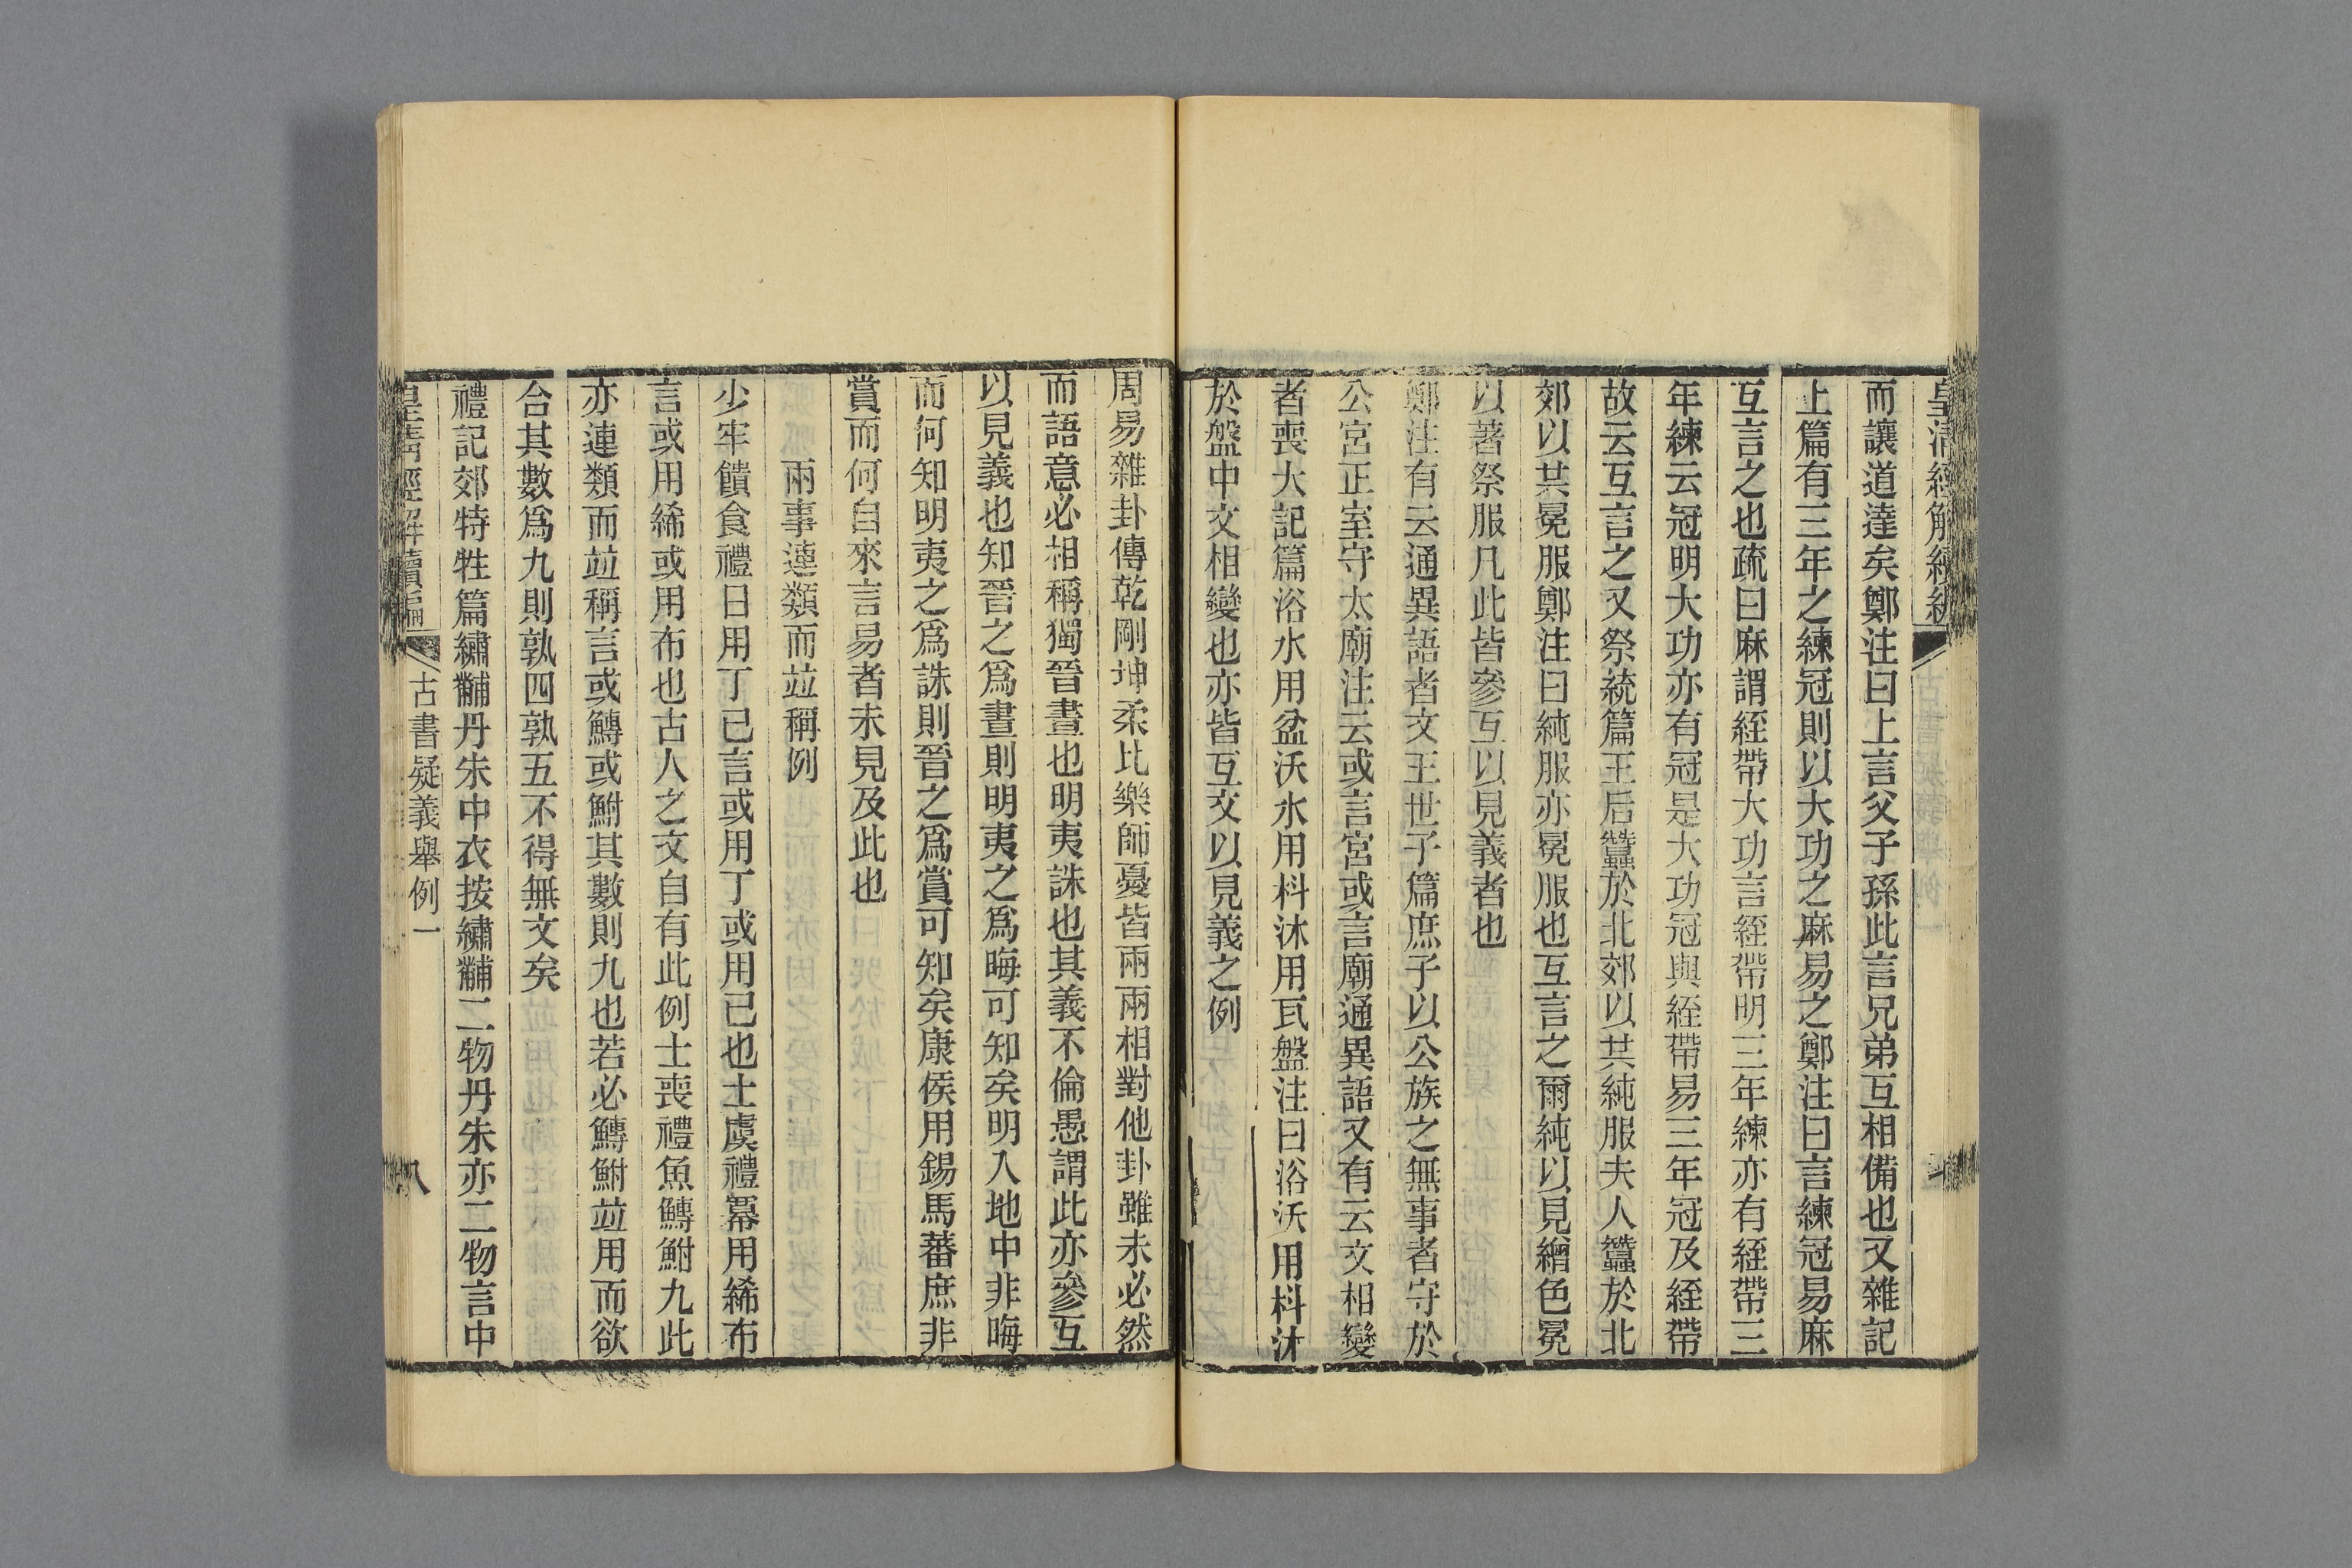 皇清經解續編
古書疑義舉例一
而讓道達矣鄭注曰上言父子孫此言兄弟互相備也又雜記
上篇有三年之練冠則以大功之麻易之鄭注曰言練冠易麻
互言之也疏曰麻謂絰帶大功言絰帶明三年練亦有絰帶三
年練云冠明大功亦有冠是大功冠與絰帶易三年冠及絰帶
故云互言之又祭統篇王后蠶於北郊以共純服夫人蠶於北
郊以共冕服鄭注曰純服亦冕服也互言之爾純以見繒色冕
以著祭服凡此皆參互以見義者也
鄭注有云通異語者文王世子篇庶子以公族之無事者守於
公宮正室守太廟注云或言宮或言廟通異語又有云文相變
者喪大記篇浴水用盆沃水用枓沐用瓦盤注曰浴沃用枓沐
於盤中文相變也亦皆互文以見義之例
周易雜卦傳乾剛坤柔比樂師憂皆兩兩相對他卦雖未必然
而語意必相稱獨晉晝也明夷誅也其義不倫愚謂此亦參互
以見義也知晉之爲晝則明夷之爲晦可知矣明入地中非晦
而何知明夷之爲誅則晉之爲賞可知矣康侯用錫馬蕃庶非
賞而何自來言易者未見及此也
兩事連類而竝稱例
少牢饋食禮日用丁己言或用丁或用己也士虞禮冪用絺布
言或用絺或用布也古人之文自有此例士喪禮魚鱄鮒九此
亦連類而竝稱言或鱄或鮒其數則九也若必鱄鮒竝用而欲
合其數爲九則孰四孰五不得無文矣
禮記郊特牲篇繡黼丹朱中衣按繡黼二物丹朱亦二物言中
皇清經解續編
古書疑義舉例一
八